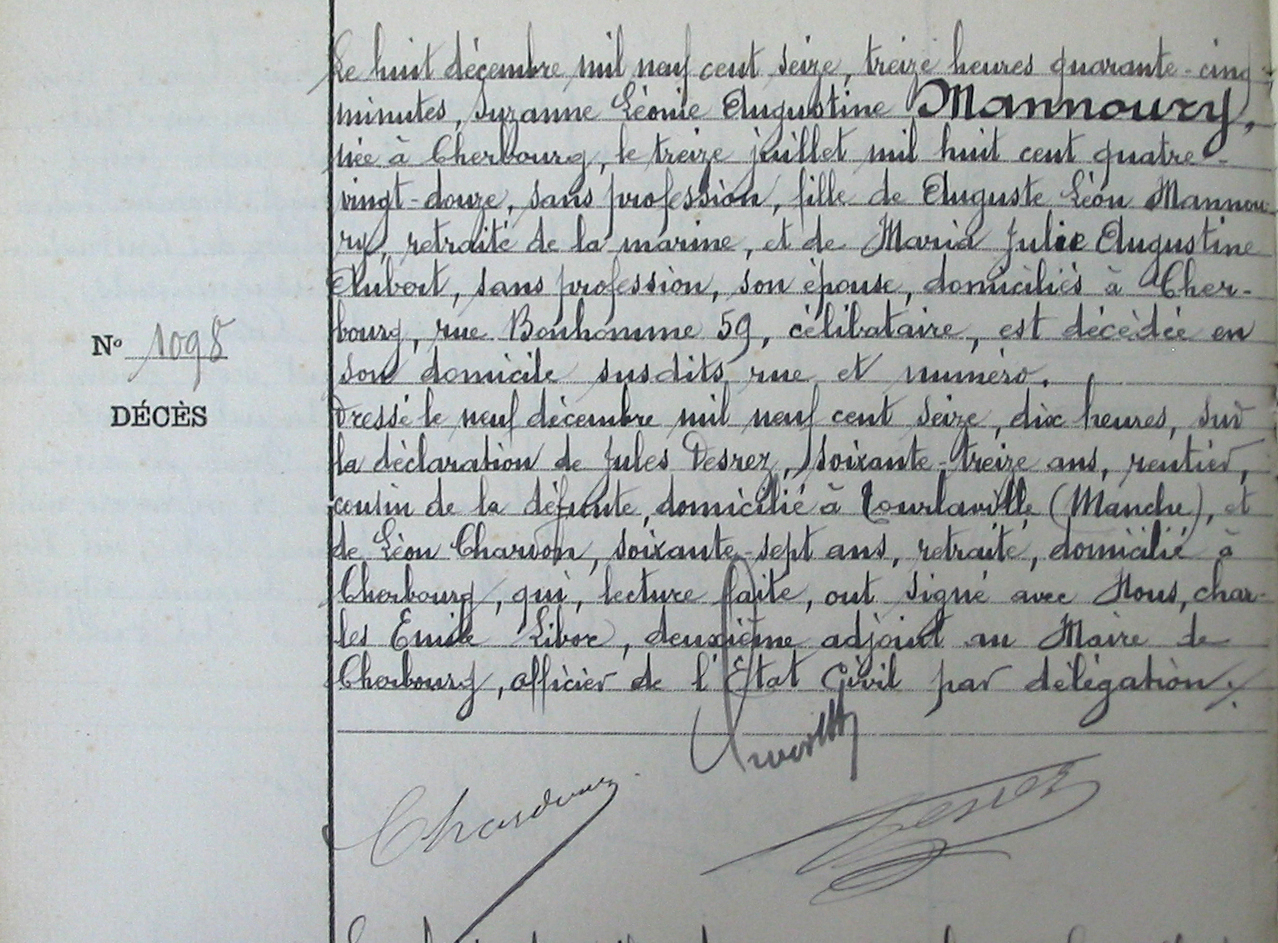 Le huit décembre mil neuf cent seize, treize heures quarante-cinq
minutes, Suzanne Léonie Augustine Mannoury,
née à Cherbourg, le treize juillet mil huit cent quatre-
vingt-douze, sans profession, fille de Auguste Léon Mannou-
ry, retraité de la marine, et de Maria Julie Augustine
Aubert, sans profession, son épouse, domiciliés à Cher-
bourg, rue Bonhomme 59, célibataire, est décédée en
son domicile susdits rue et numéro.
Nº 1098
DÉCÈS
Dressé le neuf décembre mil neuf cent seize, dix heures, sur
la déclaration de Jules Desrez, soixante-treize ans, rentier,
cousin de la défunte, domicilié à Tourlaville (Manche), et
de Léon Chardon, soixante-sept ans, retraité, domicilié à
Cherbourg, qui, lecture faite, ont signé avec Nous, Char-
les Emile Liboz, deuxième adjoint au Maire de
Cherbourg, officier de l'Etat Civil par délégation.
Desrez